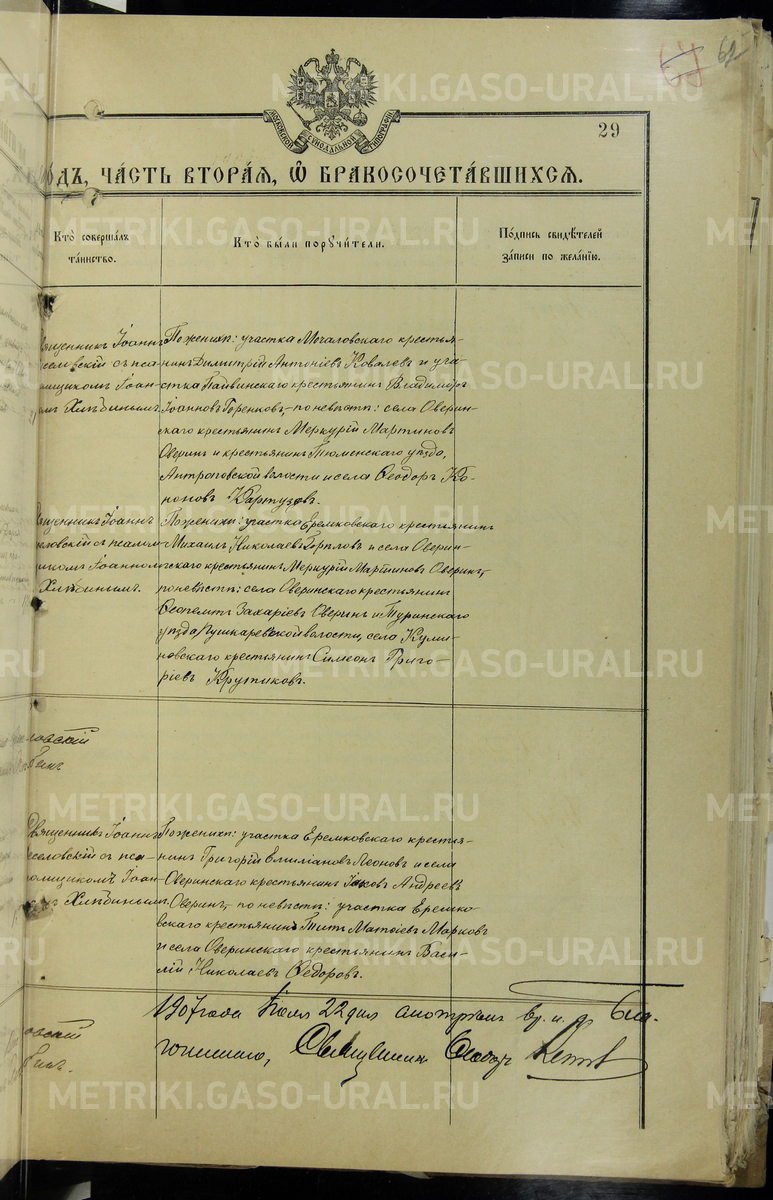 69
МОСКОВСКОЙ СѴНОДАЛЬНОЙ ТИПОГРАФІИ
29
ГОДЪ, ЧА́СТЬ ВТОРА́Я, Ѡ БРАКОСОЧЕТА́ВШИХСЯ.
Кто̀ соверша́лъ
та́инство.
Кто̀ бы́ли порꙋчи́тели.
По́дпись свидѣ́телей
за́писи по жела́нїю.
Священникъ Іоаннъ
селовскій съ псал-
омщикомъ Іоан-
Хлѣбинымъ
По женихѣ: участка Мочаловскаго крестья-
нинъ Димитрій Антоніевъ Ковалевъ и уча-
стка Пайвинскаго крестьянинъ Владиміръ
Іоанновъ Горенковъ,- по невѣстѣ: села Оверин-
скаго крестьянинъ Меркурій Мартиновъ
Оверинъ и крестьянинъ Тюменскаго уѣзда,
волости и села Ѳеодоръ Ко-
ноновъ Картузовъ.
Священникъ Іоаннъ
селовскій съ псалом-
щикомъ Іоанномъ
Хлѣбинымъ.
По женихѣ: участка Еремковскаго крестьянинъ
Михаилъ Николаевъ и села Оверин-
скаго крестьянинъ Меркурій Мартиновъ Оверинъ,
по невѣстѣ: села Оверинскаго крестьянинъ
Захаріевъ Оверинъ и Туринскаго
уѣзда Пушкаревской волости, села Кули-
новскаго крестьянинъ Симеонъ Григо-
ріевъ Крутиковъ.
ловскій
бинъ
Священникъ Іоаннъ
селовскій съ пса-
ломщикомъ Іоан-
Хлѣбинымъ
По женихѣ: участка Еремковскаго крестья-
нинъ Григорій Емиліановъ Леоновъ и села
Оверинскаго крестьянинъ Іаковъ Андреевъ
Оверинъ,- по невѣстѣ: участка Еремко-
вскаго крестьянинъ Титъ Матѳіевъ Марковъ
и села Оверинскаго крестьянинъ Васи-
лій Николаевъ Ѳедоровъ.
овскій
бинъ.
1907 года Іюля 22 дня смотрѣлъ вр. и. д. Бла-
гочиннаго, Священникъ Ѳеодоръ
METRIKI.GASO-URAL.RU